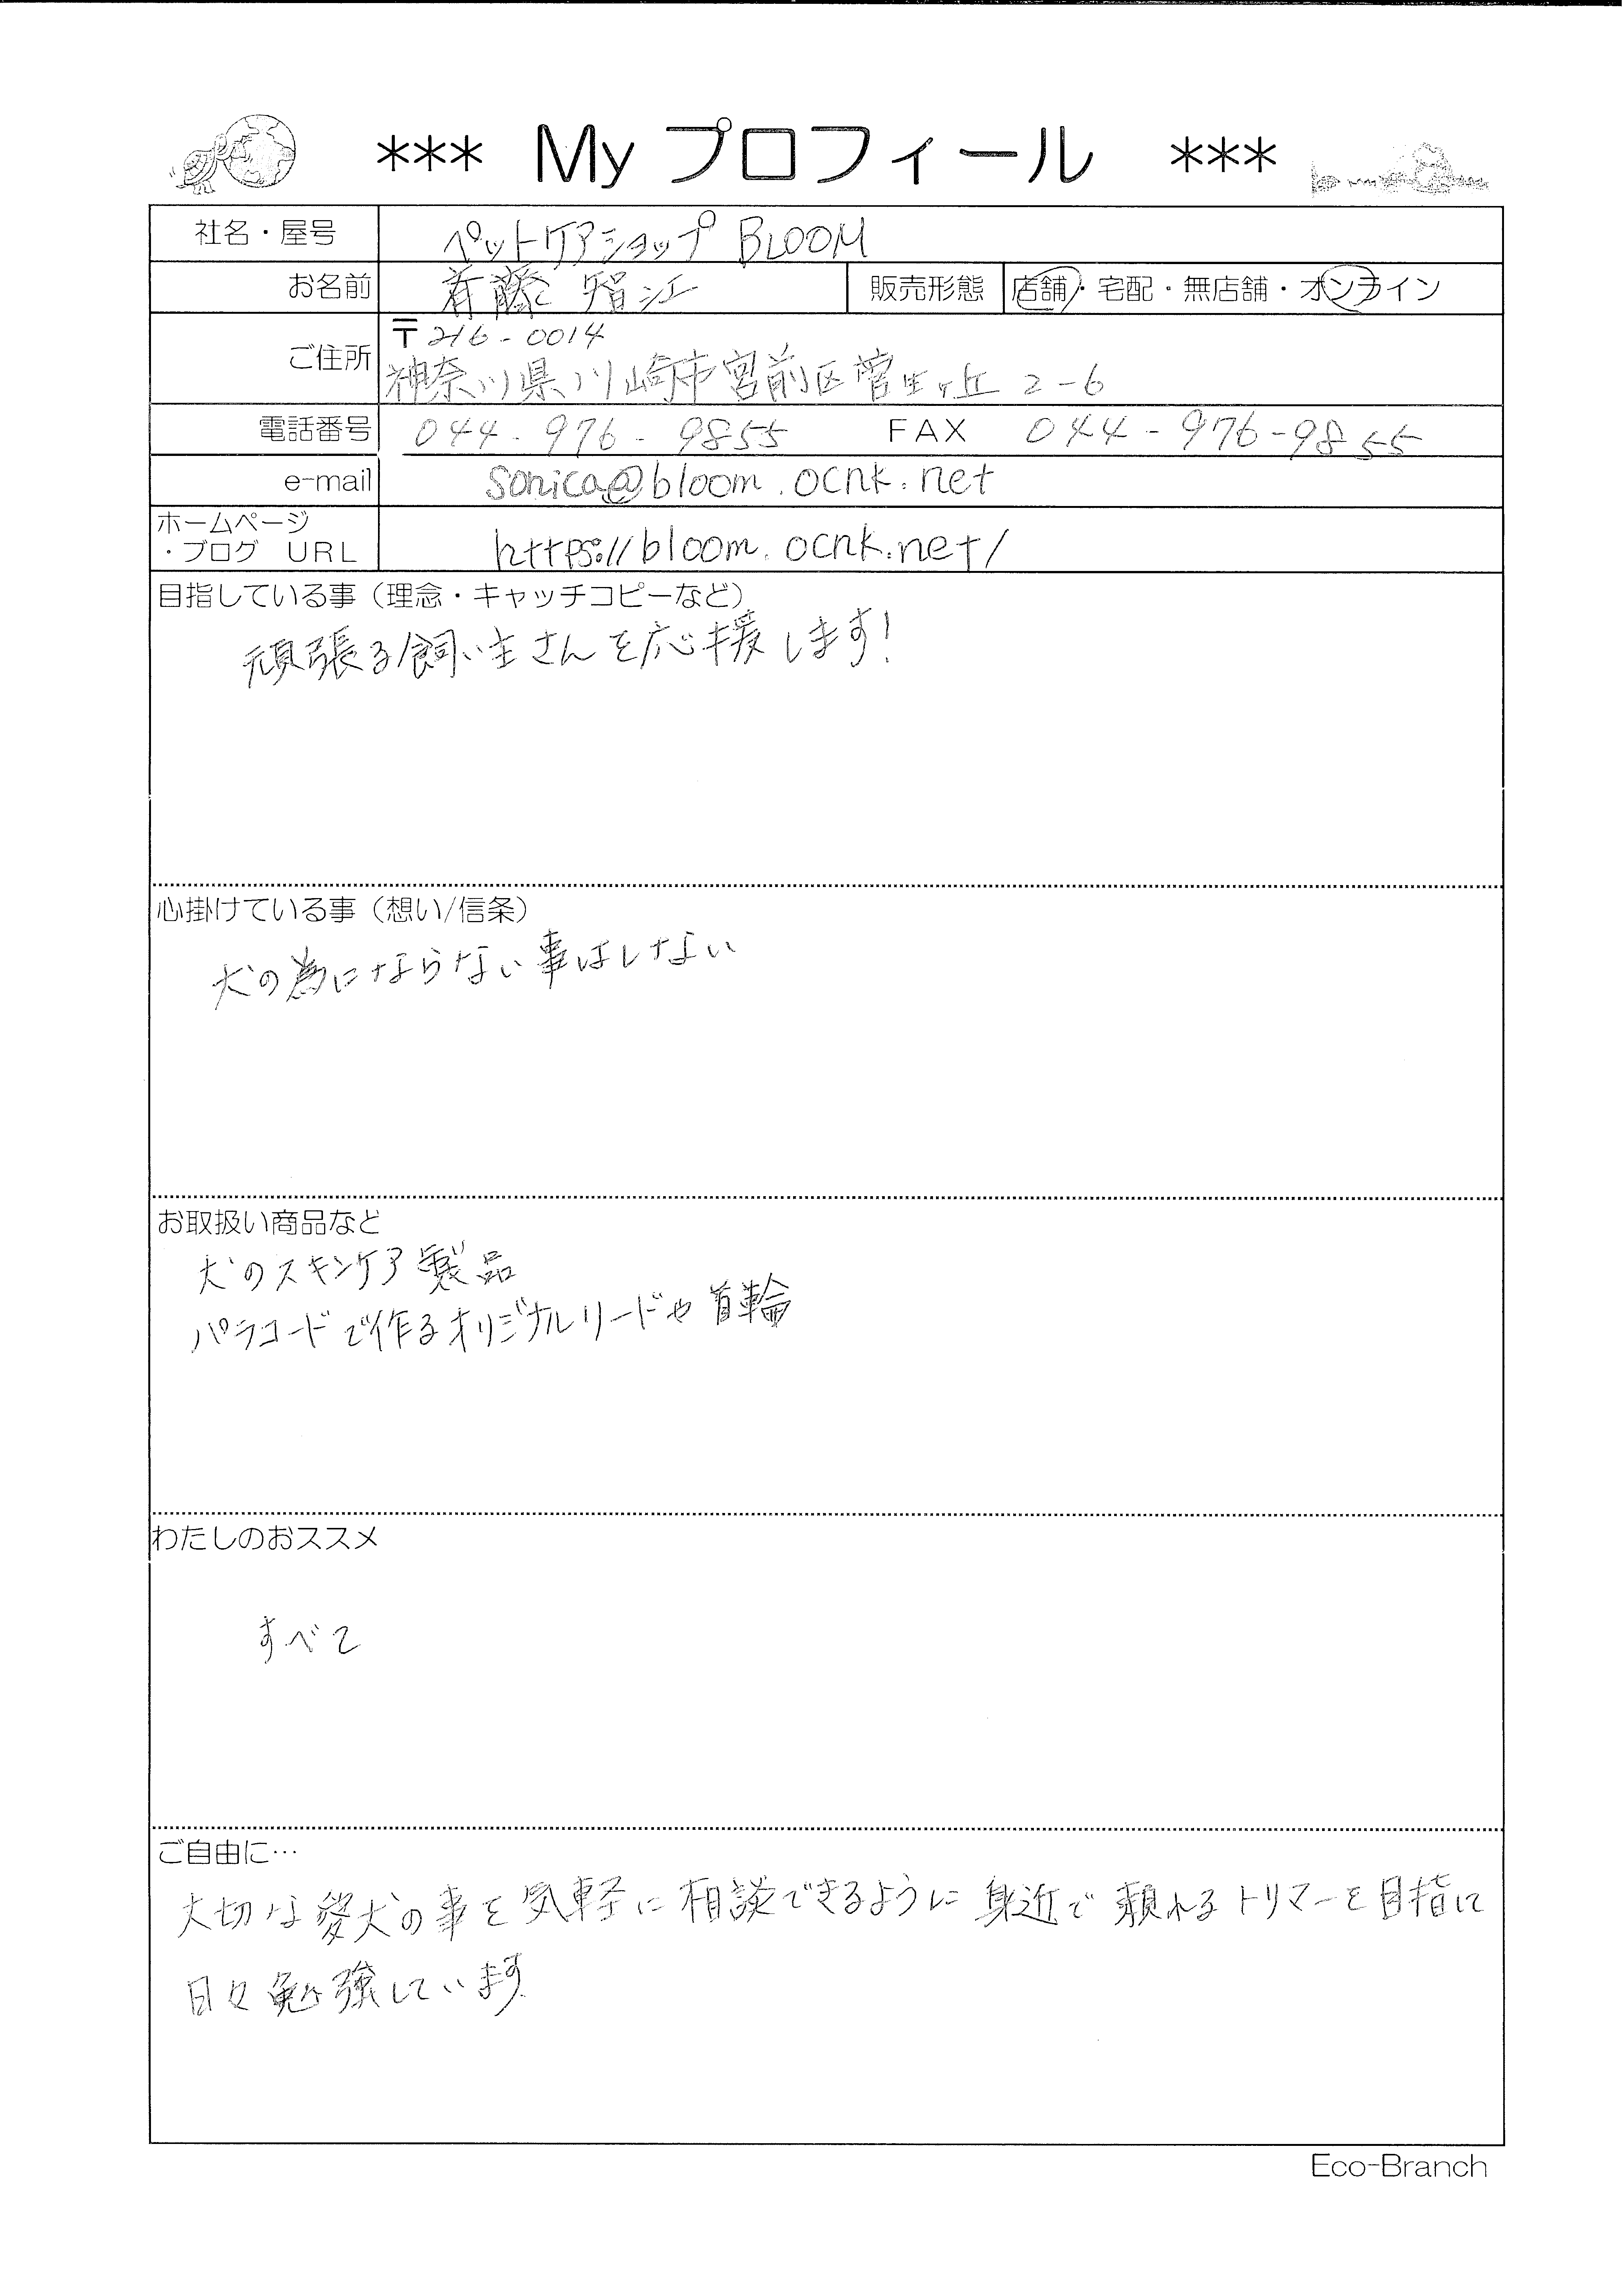 *** My プロフィール ***
社名・屋号 ペットケアショップ BLOOM
お名前 斉藤 智江 販売形態 店舗・宅配・無店舗・オンライン
〒216-0014
ご住所 神奈川県川崎市宮前区菅生ヶ丘 2-6
電話番号 044-976-9855 FAX 044-976-9855
e-mail sonica@bloom.ocnk.net
ホームページ
・ブログ URL https://bloom.ocnk.net/
目指している事（理念・キャッチコピーなど）
頑張る飼い主さんを応援します!
心掛けている事（想い/信条）
犬の為にならない事はしない
お取扱い商品など
犬のスキンケア製品
パラコードで作るオリジナルリードや首輪
わたしのおススメ
すべて
ご自由に…
大切な愛犬の事を気軽に相談できるように身近で頼れるトリマーを目指して
日々勉強しています
Eco-Branch